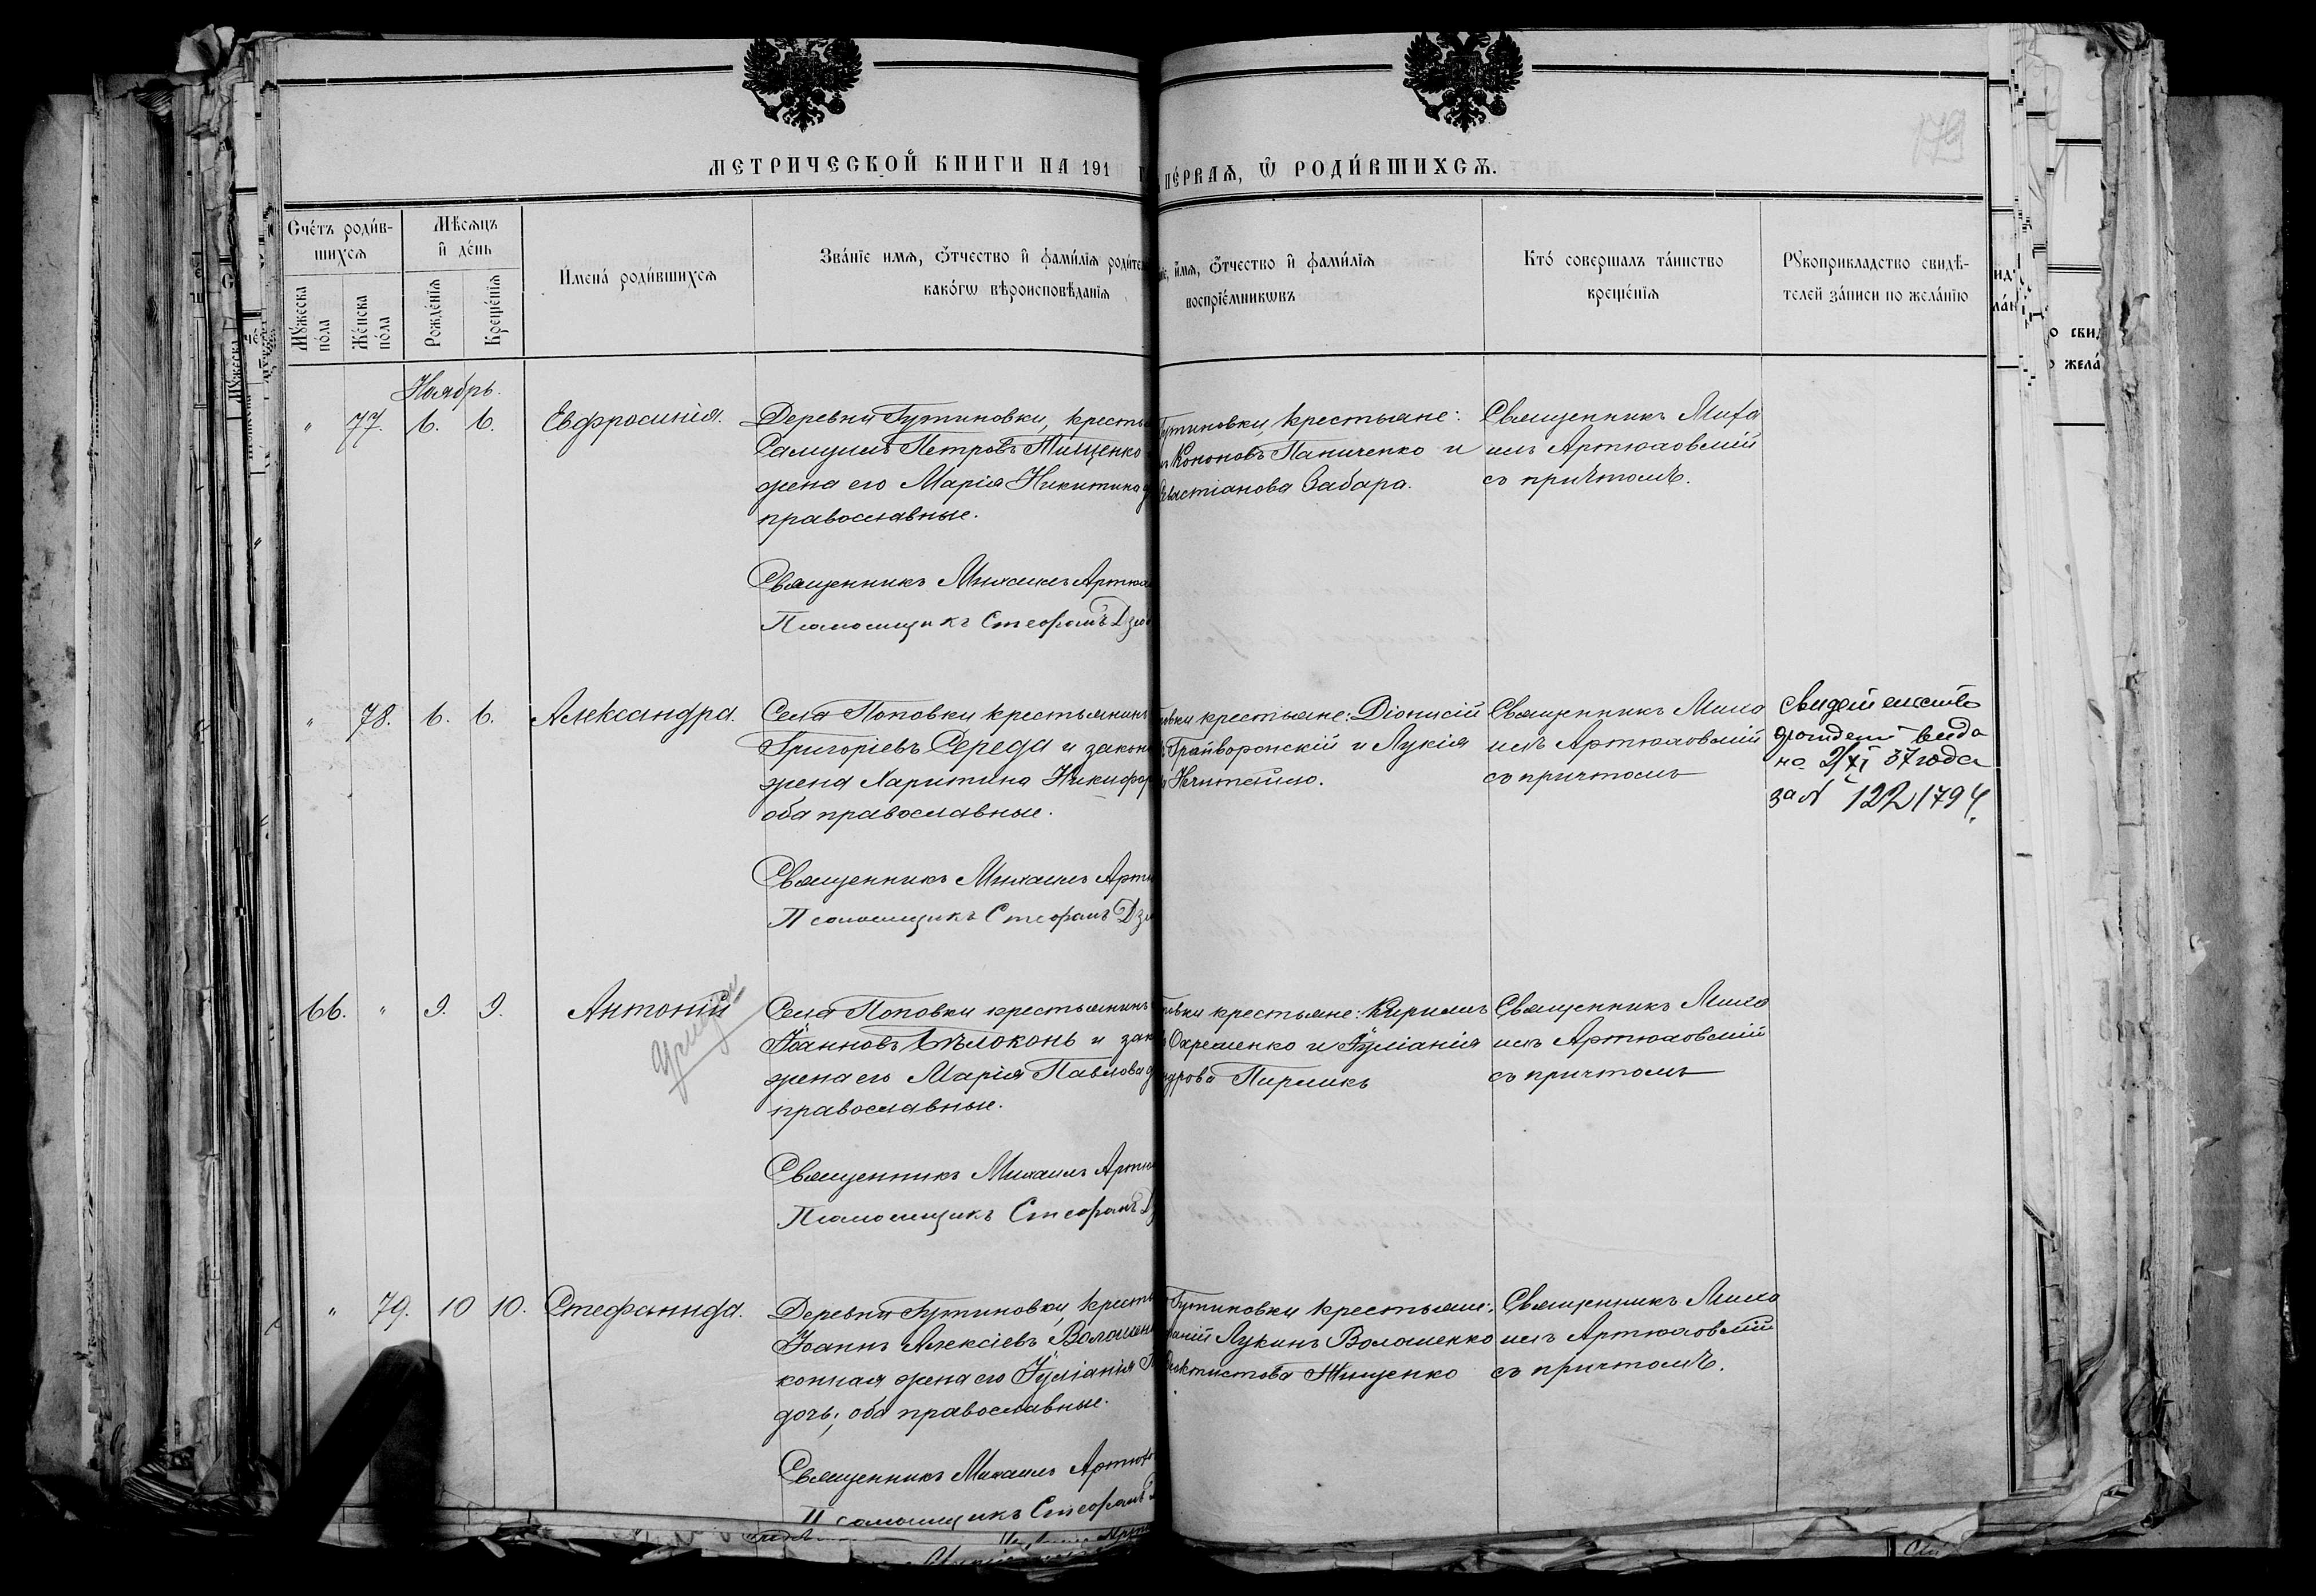 МЕТРИЧЕСКОЙ КНИГИ НА 191
ПЕ́РВАѦ, Ѿ РОДИ́ВШИХСѦ.
Сче́тъ роди́в-
шихсѧ
Мѣ́сѧцъ
и҆ де́нь
Мꙋ́жеска
по́ла
Же́нска
по́ла
Рожде́нїѧ
Креще́нїѧ
И҆мена̀ роди́вшихсѧ
Зва́нїе имѧ, ѻ҆тчество и҆ фами́лїѧ
како́гѡ вѣроисповѣ́данїѧ
и҆́мѧ, ѻ҆́тчество и҆ фами́лїѧ
воспрїе́мникѡвъ
Кто́ совершалъ та́инство
креще́нїѧ
Рꙋкоприкладство свидѣ́-
телей за́писи по жела́нїю
Ноябрь.
" 77. 6. 6. Евфросинія.
Деревни Гутиновки, кресть
Самуилъ Петровъ Тищенко
жена его Марія Никитина
православные.
Священникъ Михаилъ Артюх
Псаломщикъ Стефанъ Дзю
Гутиновки, крестьяне:
Кононовъ Паниченко и
Севастіанова Забара.
Священникъ Миха
илъ Артюховскій
съ причтомъ.
" 78. 6. 6. Александра.
Села Поповки крестьянинъ
Григоріевъ Середа и закон
жена Харитина Никифор
оба православные.
Священникъ Михаилъ Артю
Псаломщикъ Стефанъ Дзю
крестьяне: Діонисій
Грайворонскій и Лукія
Нечитайло.
Священникъ Миха
илъ Артюховскій
съ причтомъ
на 2/XI 37 года
за № 1221794
66. " 9. 9. Антоній
Села Поповки крестьянинъ
Іоанновъ Бѣлоконь и зак
жена его Марія Павлова
православные.
Священникъ Михаилъ Артю
Псаломщикъ Стефанъ Д
крестьяне: Кириллъ
Охременко и Іуліанія
Пирликъ
Священникъ Миха
илъ Артюховскій
съ причтомъ
" 79. 10 10. Стефанида.
Деревни Гутиновки, кресть
Іоаннъ Алексіевъ Волошен
конная жена его Іуліанія
дочь; оба православные.
Священникъ Михаилъ Артюх
Псаломщикъ Стефанъ
Гутиновки крестьяне:
Лукинъ Волошенко
Феоктистова Тищенко
Священникъ Миха
илъ Артюховскій
съ причтомъ.